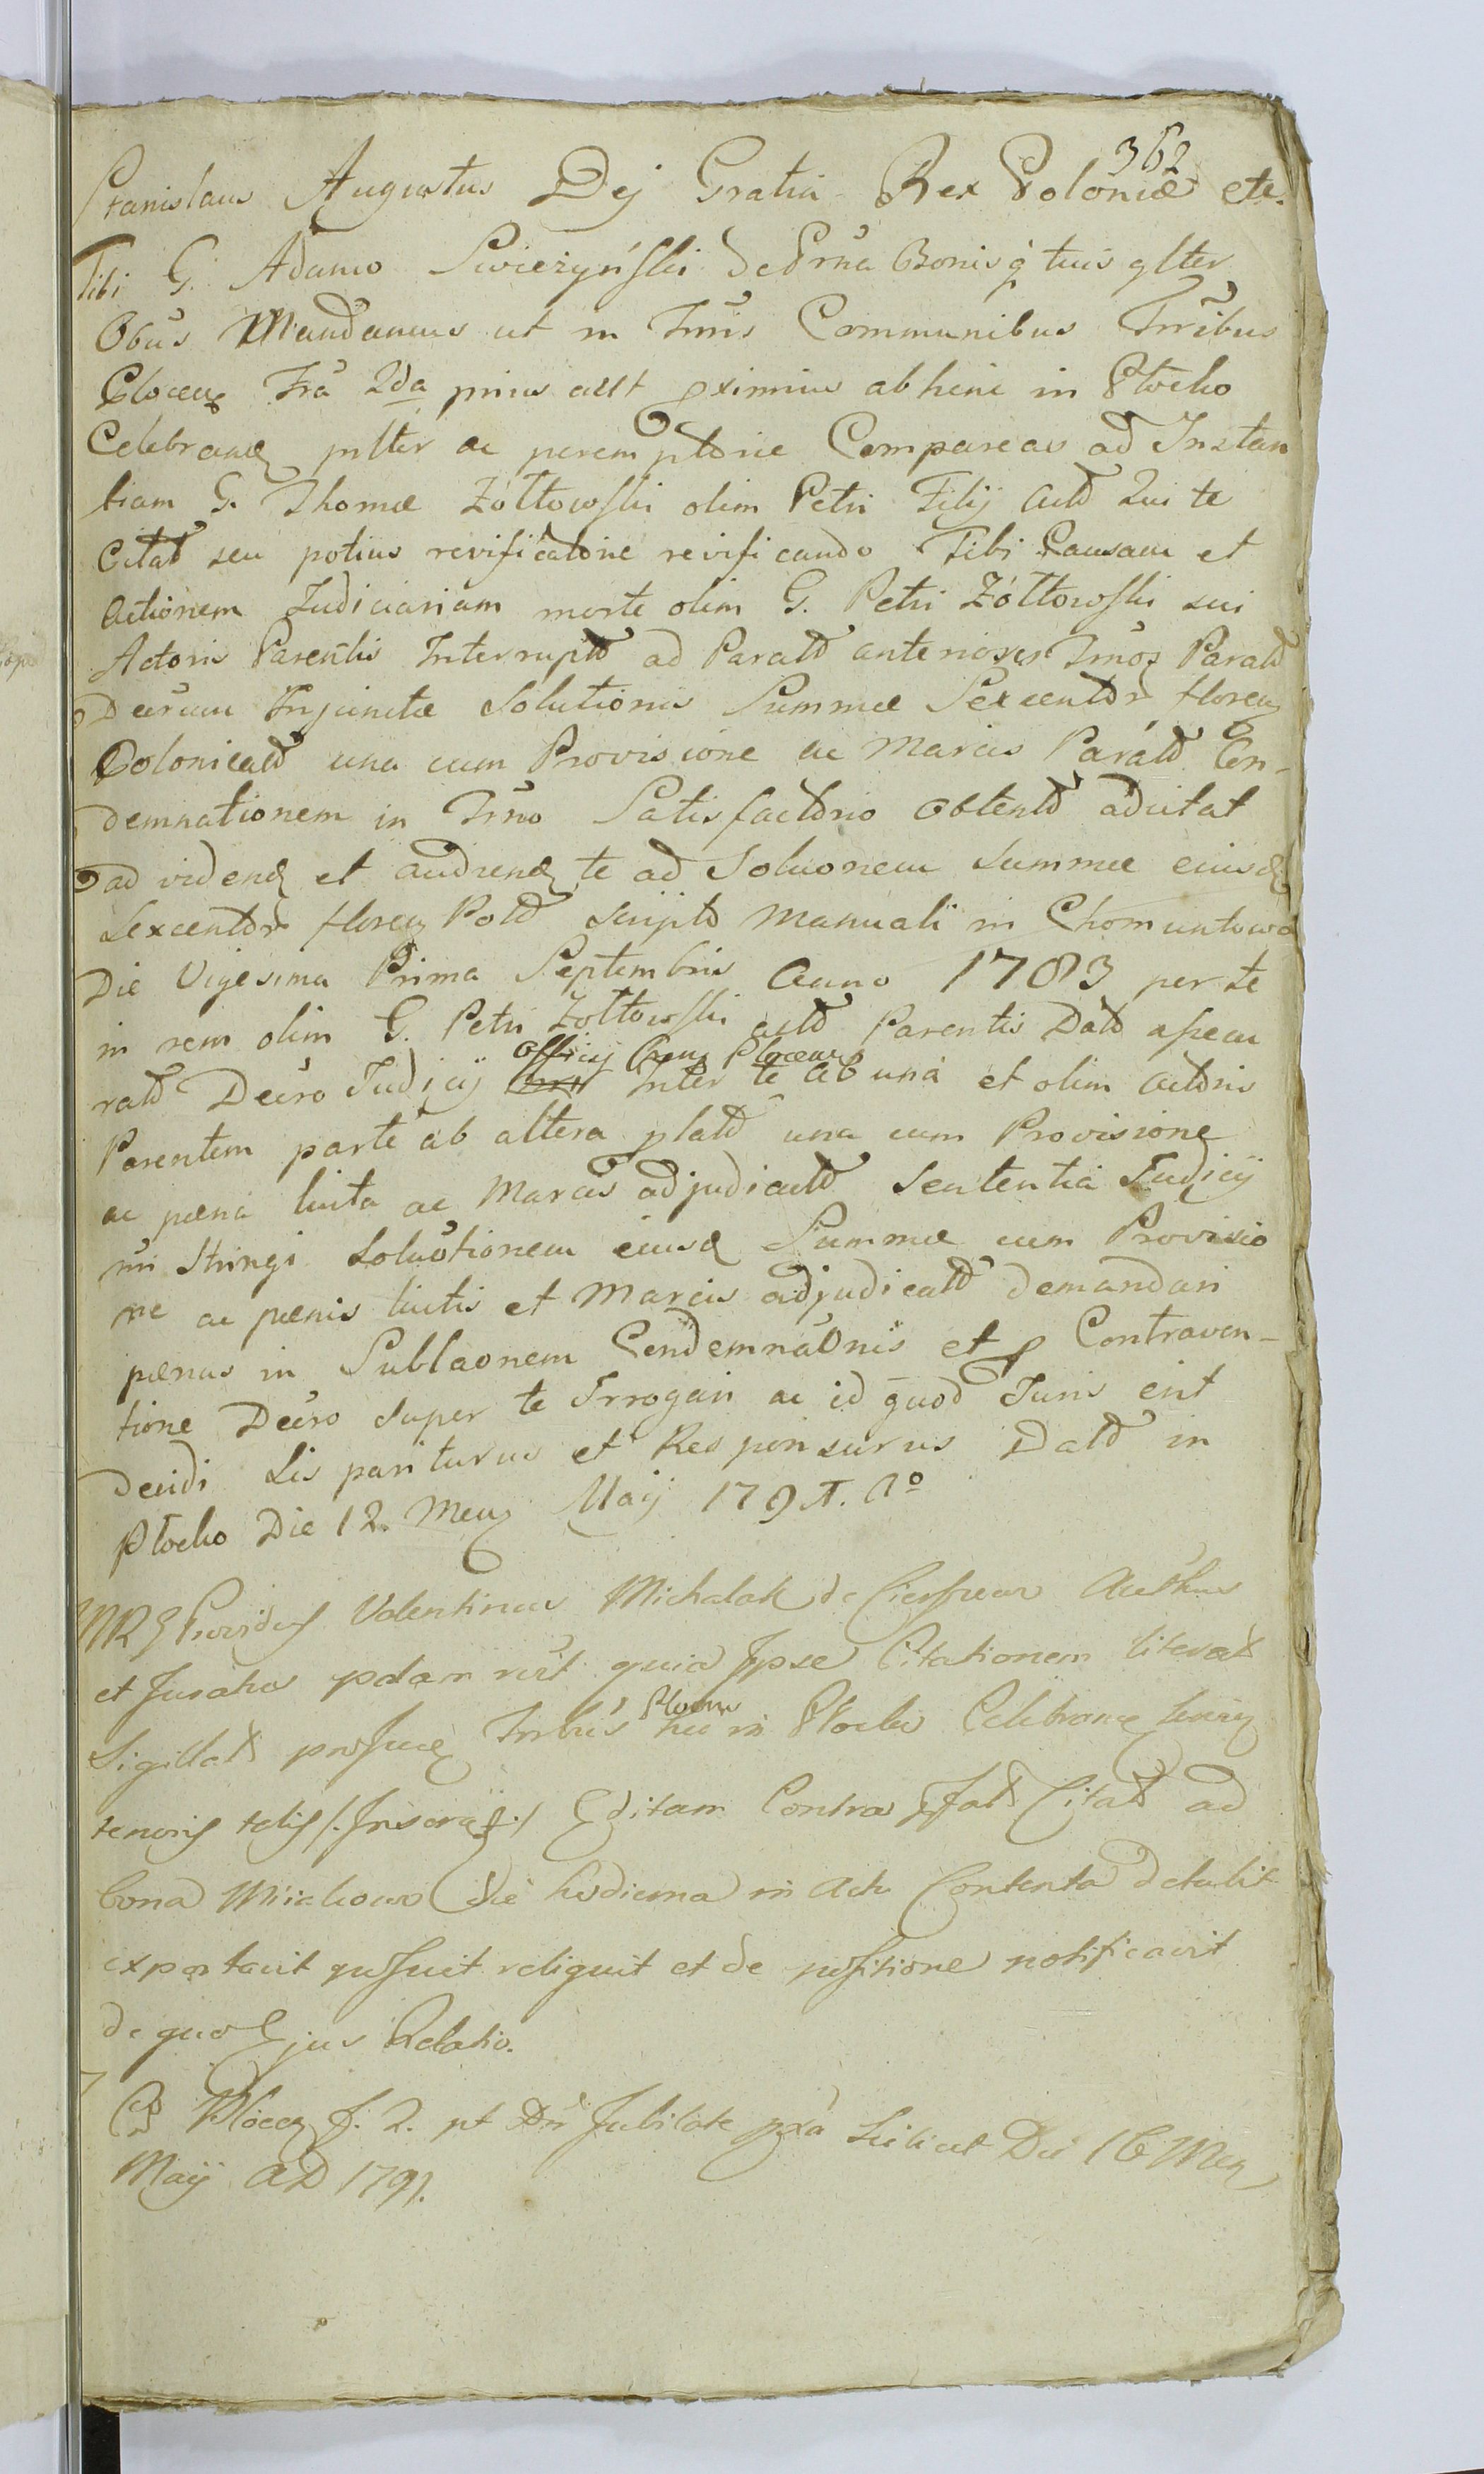 362
Stanislaus Augustus Dej Gratia Rex Poloniæ etc.
Tibi G. Adamo Swieżyński de Prñа Bonisq̃ tuis glter
Obus Mandamus ut in Trmis Communibus Trribus
Plocen Fra 2da prius aut pximius abhinc in Płocko
Celebrand pnlter ac peremptorie Compareas ad Instan
tiam G. Thomæ Żółtowski olim Petri Filij Actō Qui te
Citat seu potius revificatorie revificando Tibi Causam et
Actionem Judiciariam morte olim G. Petri Żółtowski sui
Actoris Parentis Interrupt ad Parat anteriores Trmos Parat
Decrum Injunctæ Solutionis Summæ Sexcentor floren
Polonical una cum Provisione ac Marcis Parat Con-
demnationem in Trmo Satisfactorio obtent adcitat
ad videnđ et audienđ te ad Soluonem Summæ eiusđ
Sexcentor floren Pol Scripto Manuali in Chomuntowo
Die Vigesima Prima Septembris Anno 1783 per te
in rem olim G. Petri Żółtowski Actō Parentis Dato assecu
rat Decro Judicij Officij Cteus Plocens Inter te ab una et olim Actoris
Parentem parte ab altera plat una cum Provisione
ac pæna luita ac Marcis adjudicat Sententia Judicij
nri Stringi Solutionem eiusđ Summæ cum Provisio
ne ac pænis luitis et Marcis adjudicat demandari
pænas in Sublaonem Condemnaonis et p Contraven-
tione Decro super te Irrogari ac id quod Juris erit
decidi Sis pariturus et Responsurus Dat in
Płocko Die 12. Mens Maij 1791. Ao
MRE Providus Valentinus Michalak de Ciesszewo Authus
et Juratus palam rcit quia Ipse Citationem literat
Sigillat Trrbus Plocens hic in Płocko Celebrand
tenoris talis /:Inserat:/ Editam Contra Citat ad
bona Miichowo die hodierna in Actu Contenta detulit
exportavit posuit reliquit et de positione notificavit
de quo Ejus Relatio.
Plocen f. 2. pt Dñ Jubilate pxa Scilicet Die 16 Men
Maij AD 1791.